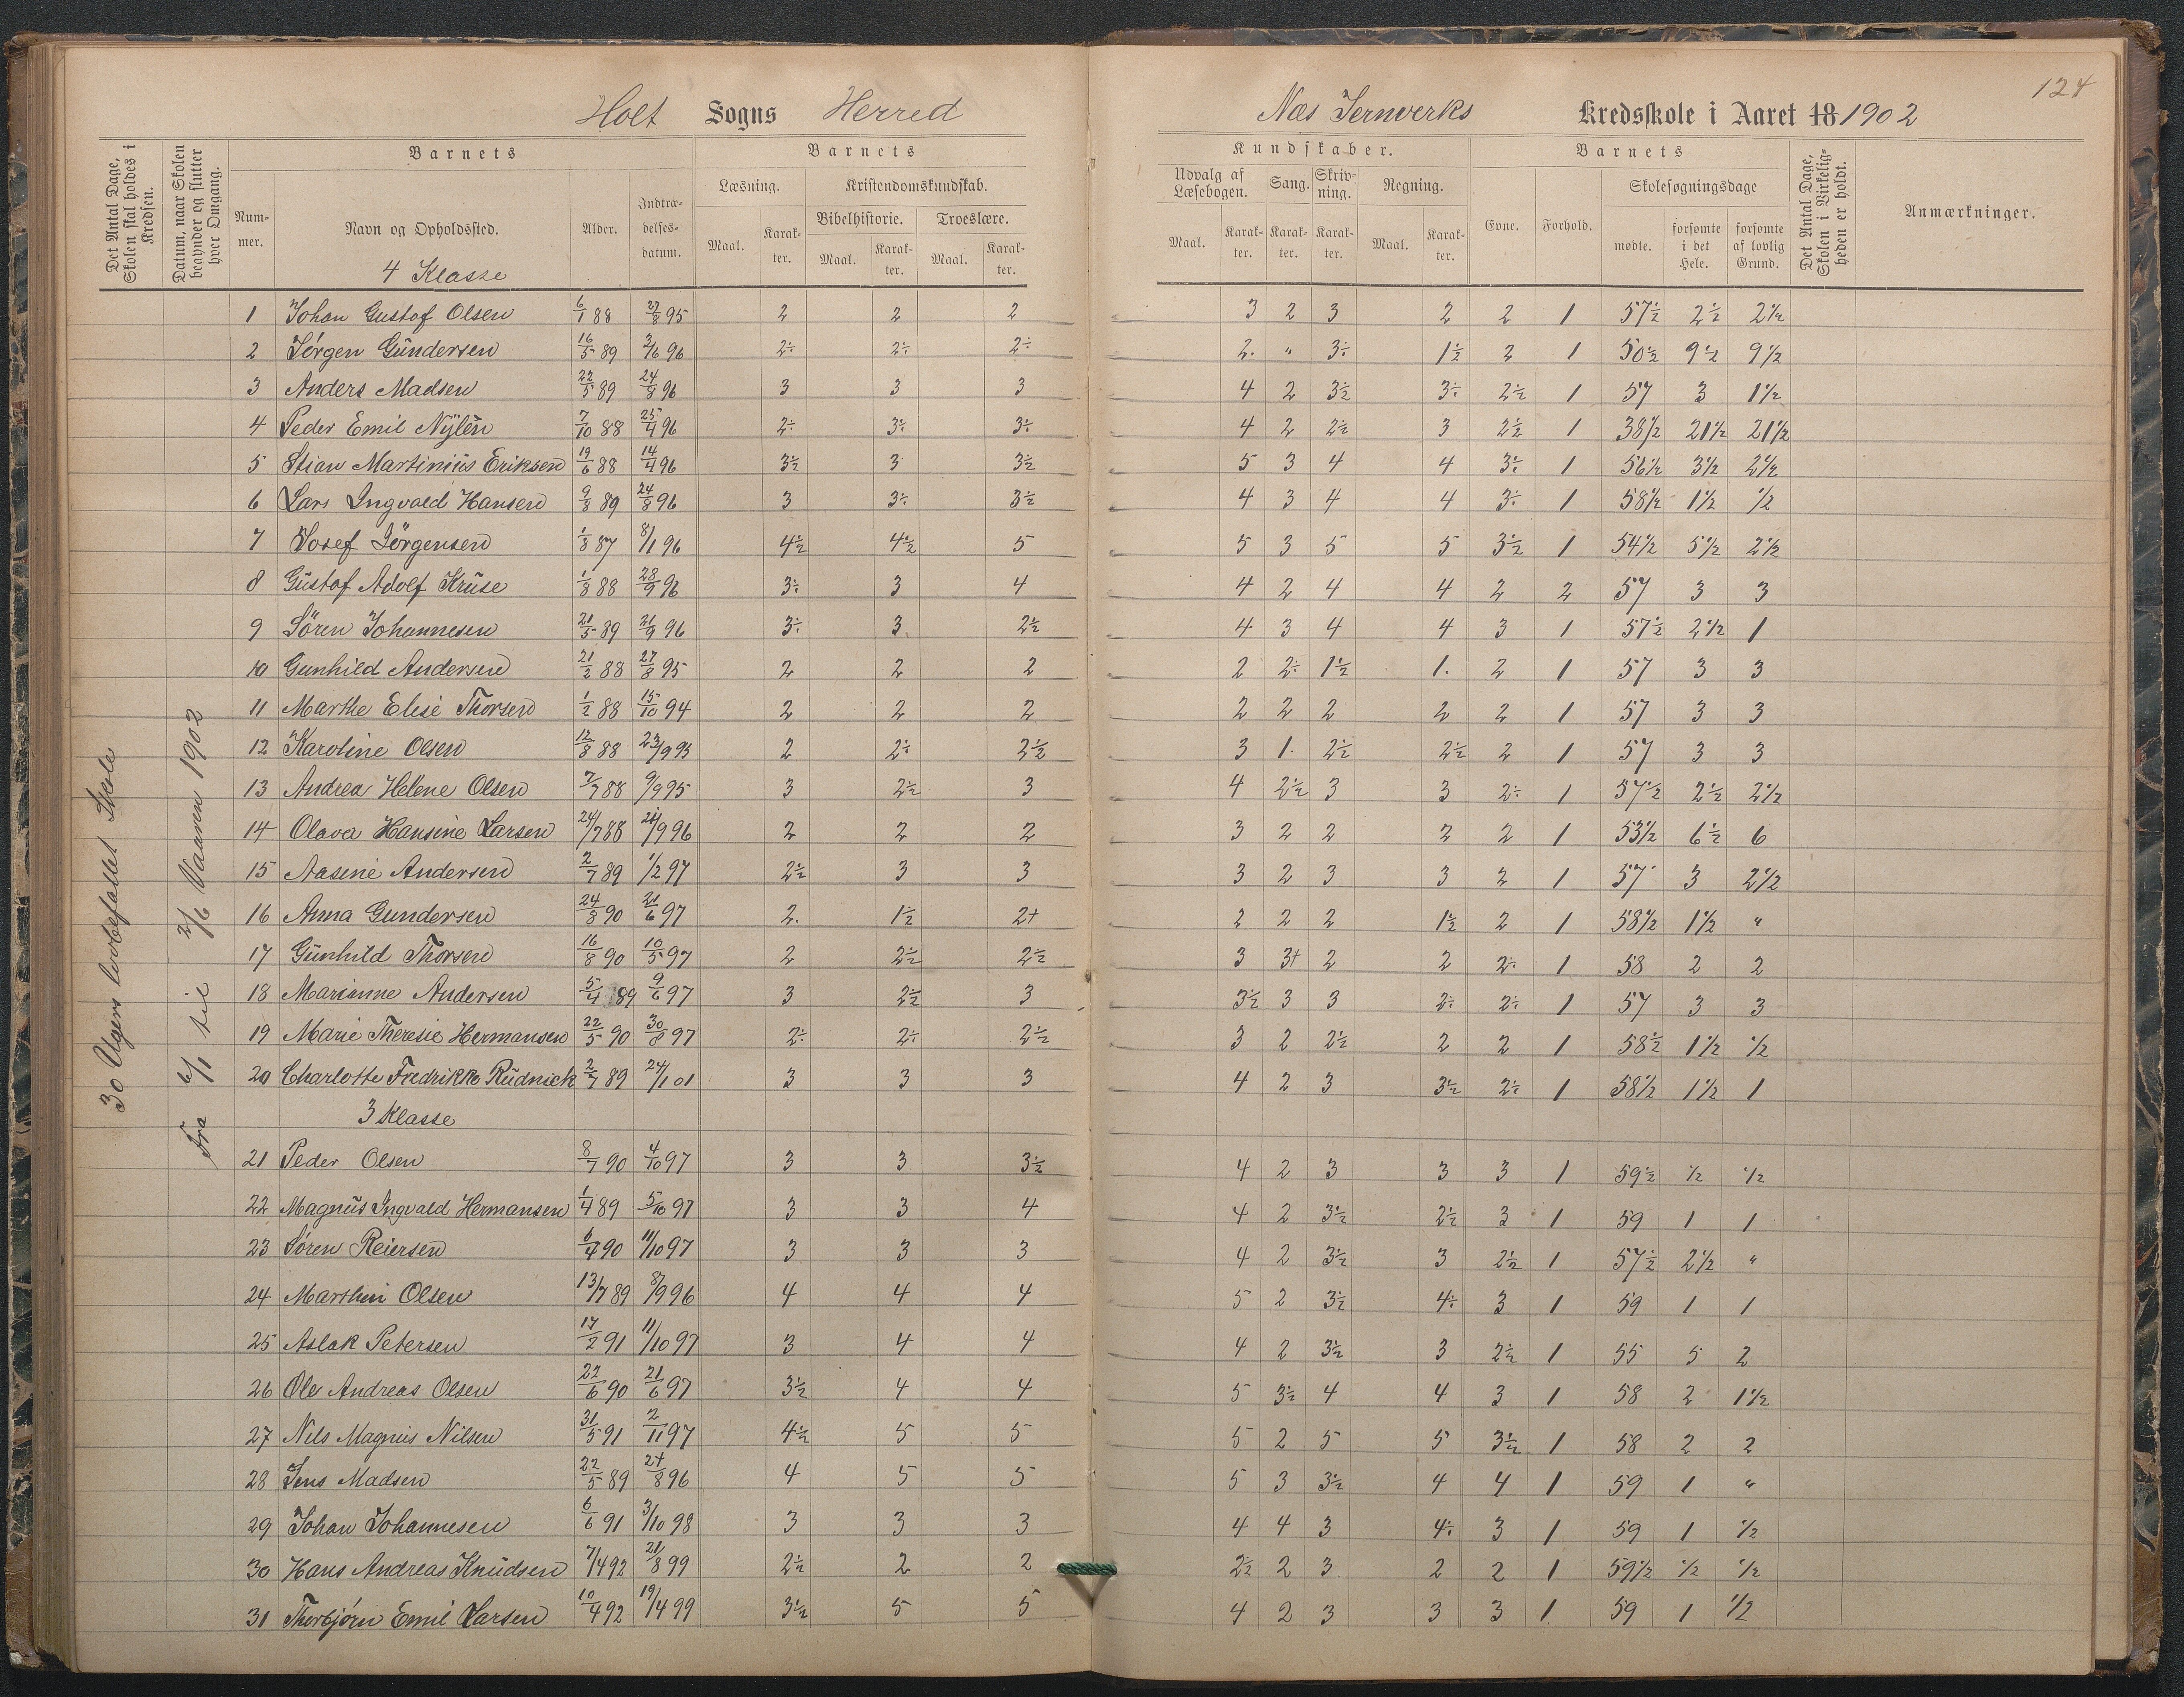 124
Holt Sogns Herred Næs Jernverks Kredsskole i Aaret 18 1902
Det Antal Dage, Skolen skal holdes i Kredsen.
Datum, naar Skolen begynder og slutter hver Omgang.
Barnets Barnets Kundskaber. Barnets
Det Antal Dage, Skolen i Virkeligheden er holdt.
Anmærkninger.
Nummer. Navn og Opholdssted. Alder. Indtrædelsesdatum. Læsning. Kristendomskundskab. Udvalg af Læsebogen. Sang. Skrivning. Regning. Evne. Forhold. Skolesøgningsdage
Bibelhistorie. Troeslære.
Maal. Karakter. Maal. Karakter. Maal. Karakter. Maal. Karakter. Karakter. Karakter. Maal. Karakter. mødte. forsømte i det Hele. forsømte af lovlig Grund.
30 Ugers lovbefallet Skole
Fra 6/1 til 2/6 Vaaren 1902
4 Klasse
1 Johan Gustaf Olsen 6/1 88 27/8 95 2 2 2 3 2 3 2 2 1 57½ 2½ 2½
2 Jörgen Gundersen 16/5 89 3/6 96 2÷ 2÷ 2÷ 2. " 3÷ 1½ 2 1 50½ 9½ 9½
3 Anders Madsen 22/5 89 24/8 96 3 3 3 4 2 3½ 3÷ 2½ 1 57 3 1½
4 Peder Emil Nylén 7/10 88 25/4 96 2÷ 3÷ 3÷ 4 2 2½ 3 2½ 1 38½ 21½ 21½
5 Stian Martinius Eriksen 19/6 88 14/4 96 3½ 3 3½ 5 3 4 4 3÷ 1 56½ 3½ 2½
6 Lars Ingvald Hansen 9/8 89 24/8 96 3 3÷ 3½ 4 3 4 4 3÷ 1 58½ 1½ ½
7 Josef Jörgensen 1/8 87 8/1 96 4½ 4½ 5 5 3 5 5 3½ 1 54½ 5½ 2½
8 Gustaf Adolf Kruse 1/8 88 28/9 96 3÷ 3 4 4 2 4 4 2 2 57 3 3
9 Sören Johannesen 21/5 89 21/9 96 3÷ 3 2½ 4 3 4 4 3 1 57½ 2½ 1
10 Gunhild Andersen 21/2 88 27/8 95 2 2 2 2 2÷ 1½ 1. 2 1 57 3 3
11 Marthe Elise Thorsen 1/2 88 15/10 94 2 2 2 2 2 2 2 2 1 57 3 3
12 Karoline Olsen 12/8 88 23/9 95 2 2÷ 2½ 3 1. 2½ 2½ 2 1 57 3 3
13 Andrea Helene Olsen 7/7 88 9/9 95 3 2½ 3 4 2½ 3 3 2÷ 1 57½ 2½ 2½
14 Olava Hansine Larsen 24/7 88 21/9 96 2 2 2 3 2 2 2 2 1 53½ 6½ 6
15 Aasine Andersen 2/7 89 1/2 97 2½ 3 3 3 2 3 3 2 1 57 3 2½
16 Anna Gundersen 24/8 90 21/6 97 2. 1½ 2+ 2 2 2 1½ 2 1 58½ 1½ "
17 Gunhild Thorsen 16/8 90 10/5 97 2 2½ 2½ 3 3+ 2 2 2÷ 1 58 2 2
18 Marianne Andersen 5/4 89 9/6 97 3 2½ 3 3½ 3 3 2÷ 2÷ 1 57 3 3
19 Marie Theresie Hermansen 22/5 90 30/8 97 2÷ 2÷ 2½ 3 2 2½ 2 2 1 58½ 1½ ½
20 Charlotte Fredrikke Rudnick 2/7 89 24/1 01 3 3 3 4 2 3 3½ 2÷ 1 58½ 1½ 1
3 Klasse
21 Peder Olsen 8/7 90 4/10 97 3 3 3½ 4 2 3 3 3 1 59½ ½ ½
22 Magnus Ingvald Hermansen 1/4 89 5/10 97 3 3 4 4 2 3½ 2½ 3 1 59 1 1
23 Sören Reiersen 6/4 90 11/10 97 3 3 3 4 2 3½ 3 2½ 1 57½ 2½ "
24 Marthin Olsen 13/7 89 8/9 96 4 4 4 5 2 3½ 4÷ 3 1 59 1 1
25 Aslak Petersen 17/2 91 11/10 97 3 4 4 4 2 3½ 3 2½ 1 55 5 2
26 Ole Andreas Olsen 22/6 90 21/6 97 3½ 4 4 5 3½ 4 4 3 1 58 2 1½
27 Nils Magnus Nilsen 31/5 91 2/11 97 4½ 5 5 5 2 5 5 3½ 1 58 2 2
28 Jens Madsen 22/5 89 24/8 96 4 5 5 5 3 3½ 4 4 1 59 1 "
29 Johan Johannesen 6/6 91 3/10 98 3 3 3 4 4 3 4÷ 3 1 59 1 ½
30 Hans Andreas Knudsen 7/4 92 21/8 99 2½ 2 2 2½ 2 3 2 2 1 59½ ½ ½
31 Thorbjørn Emil Larsen 10/4 92 19/4 99 3½ 5 5 4 2 3 3 3 1. 59 1 ½